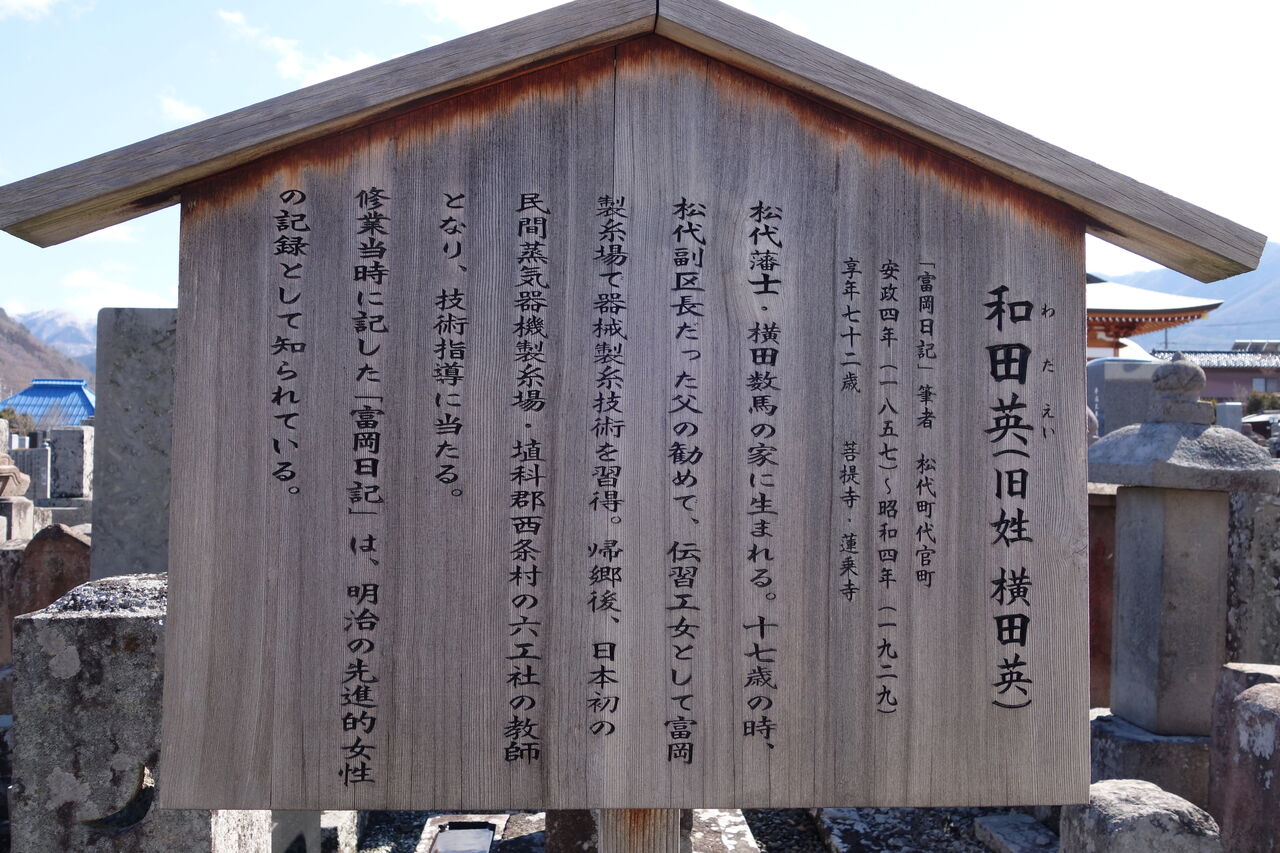 わ た えい
和田英(旧姓 横田英)
「富岡日記」筆者 松代町代官町
安政四年(一八五七)~昭和四年(一九二九)
享年七十二歳 菩提寺・蓮乗寺
松代藩士・横田数馬の家に生まれる。十七歳の時、
松代副区長だった父の勧めで、伝習工女として富岡
製糸場で器械製糸技術を習得。帰郷後、日本初の
民間蒸気器機製糸場・埴科郡西条村の六工社の教師
となり、技術指導に当たる。
修業当時に記した「富岡日記」は、明治の先進的女性
の記録として知られている。